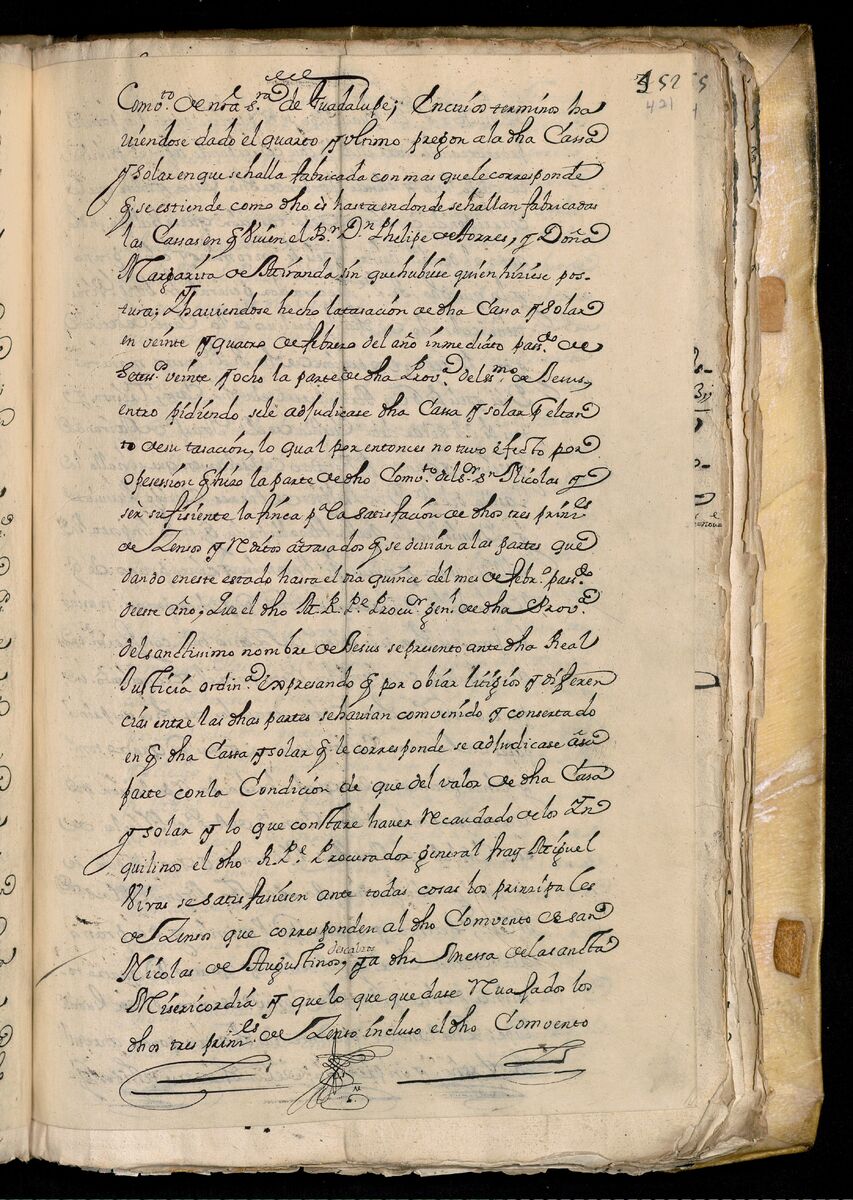 Como.to de nra s.ra de Guadalupe; En cuios terminos ha
viendose dado el quarto y vltimo pregon ala dha Cassa
y solar en que se halla fabricada con mas que le corresponde
q. se estiende como dho es hasta en donde se hallan fabricadas
las Cassas en q. viven el B.r D.n Phelipe de torres, y Doña
Margarita de Miranda sin que hubiese quien hiziese pos-
tura; Y haviendose hecho la tasación de dha Cassa y solar
en veinte y quatro de febrero del año inmediato pass.do de
Setess.os veinte y ocho la parte de dha Prov.a del ss.mo de Jesus,
entro pidiendo sele adjudicase dha Cassa y solar p el tan
to de su tasación, lo qual por entonces no tuvo efecto por
opesesión q. hizo la parte de dho Como.to del s.or s.n Nicolas y
ser sufisiente la finca p.a la satisfación de dhos tres prin.les
de Zenso y Reditos atrasados q. se devian a las partes que
dando en este estado hasta el dia quince del mes de febr.o pass.do
de este año; Que el dho M. R. P.e Procu.r gen.l de dha Prov.a
del sanctissimo nombre de Jesus se presento ante dha Real
Justicia ordin.a expresando q. por obiar litigios y diferen
cias entre las dhas partes se havian comvenido y consertado
en q. dha Cassa y solar q. le corresponde se adjudicase a su
parte con la Condición de que del valor de dha Casa
y solar y lo que constare haver Recaudado de los In
quilinos el dho R. P.e Procurador general fray Miguel
Vivas se satisfasiesen ante todas cosas los prinsipales
de Zenso que corresponden al dho Comvento de san
Nicolas de Augustinos descalzos, y a dha Messa de la sancta
Misericordia y que lo que quedase Reuajados los
dhos tres prin.les de Zenso incluso el dho Comvento